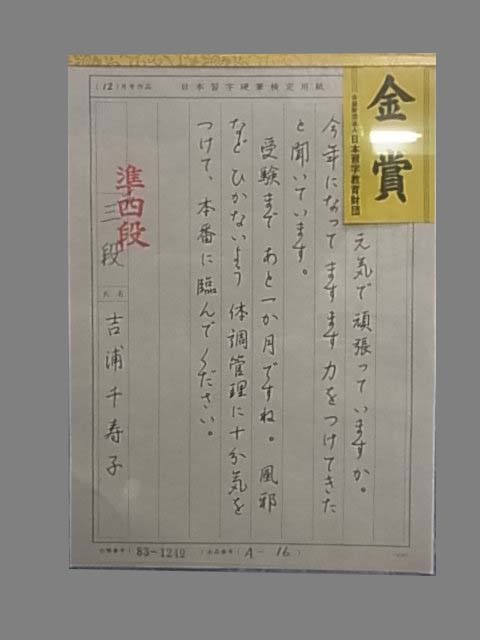 (12)月号作品 日本習字硬筆検定用紙
金賞
公益財団法人 日本習字教育財団
元気で頑張っていますか。
今年になってますます力をつけてきた
と聞いています。
受験まであと一か月ですね。風邪
などひかないよう体調管理に十分気を
つけて、本番に臨んでください。
準四段
三段
氏名 吉浦千寿子
会員番号(83-1249 )出品番号(A-16)